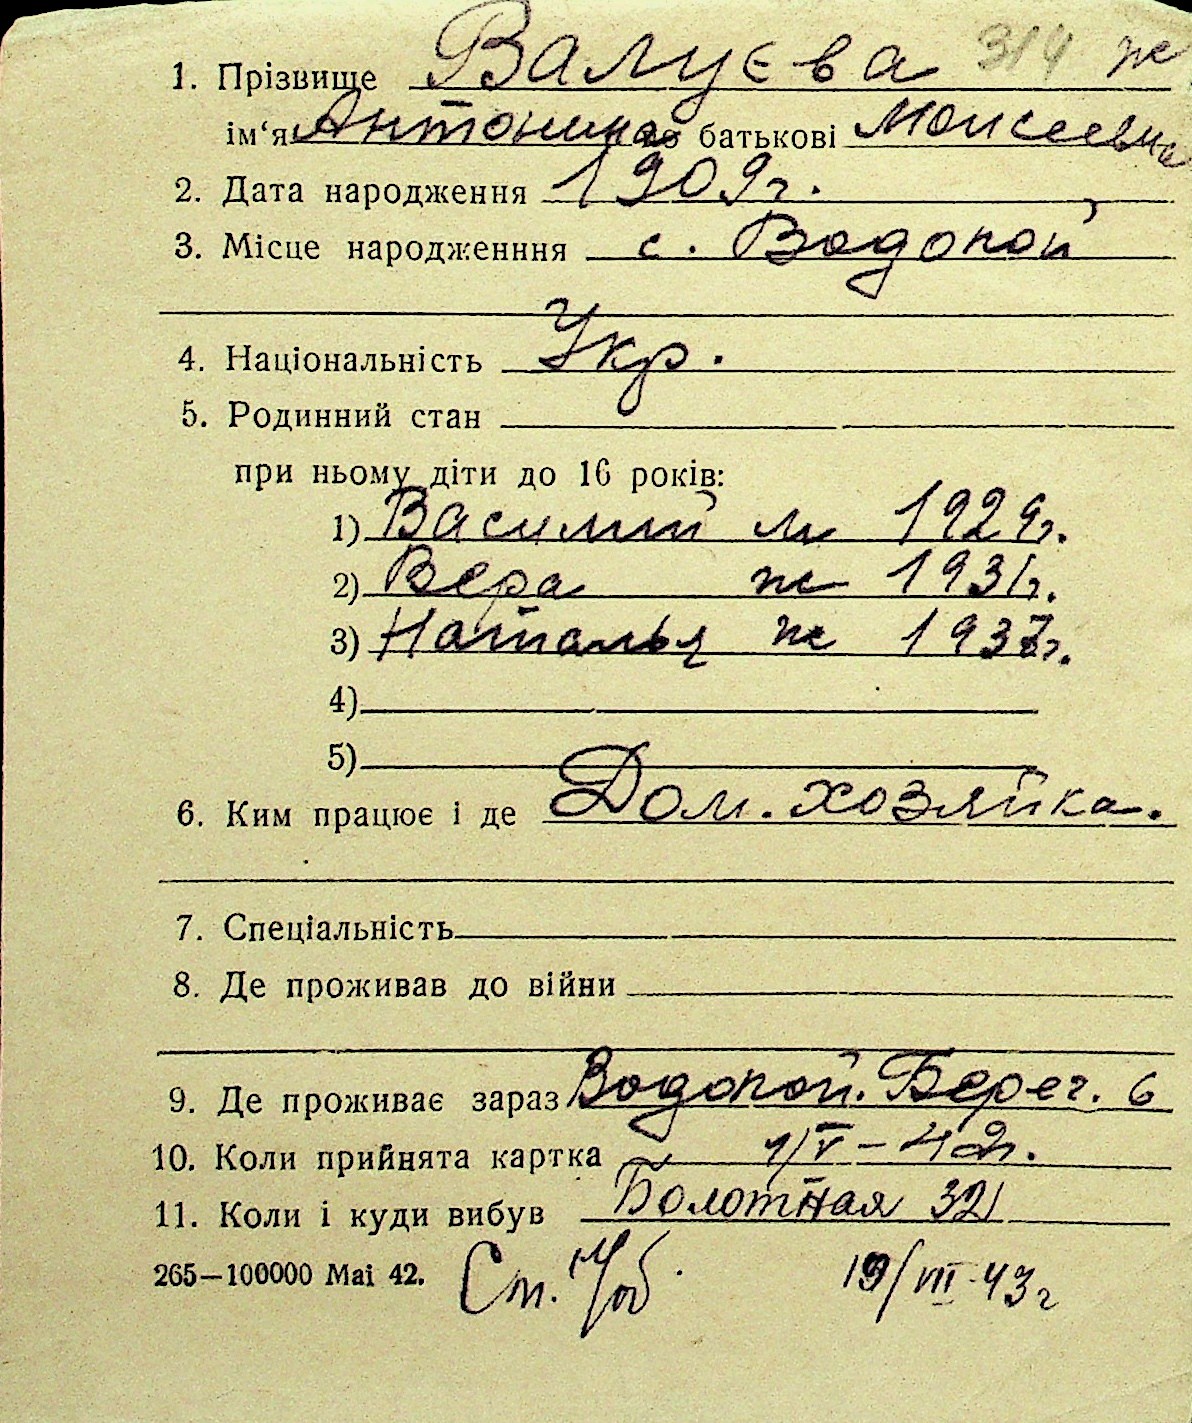 314 ж
1. Прізвище Валуєва
ім‘я Антонина по батькові Моисеевна
2. Дата народження 1909г.
3. Місце народженння с. Водопой
4. Національність Укр.
5. Родинний стан
при ньому діти до 16 років:
1) Василий м 1929г.
2) Вера ж 1931г.
3) Наталья ж 1937г.
4)
5)
6. Ким працює і де Дом. хозяйка.
7. Спеціальність
8. Де проживав до війни
9. Де проживає зараз Водопой. Берег. 6
10. Коли прийнята картка 1/V-42г.
11. Коли і куди вибув Болотная 32
265—100000 Mai 42. Ст.
19/VII-43г